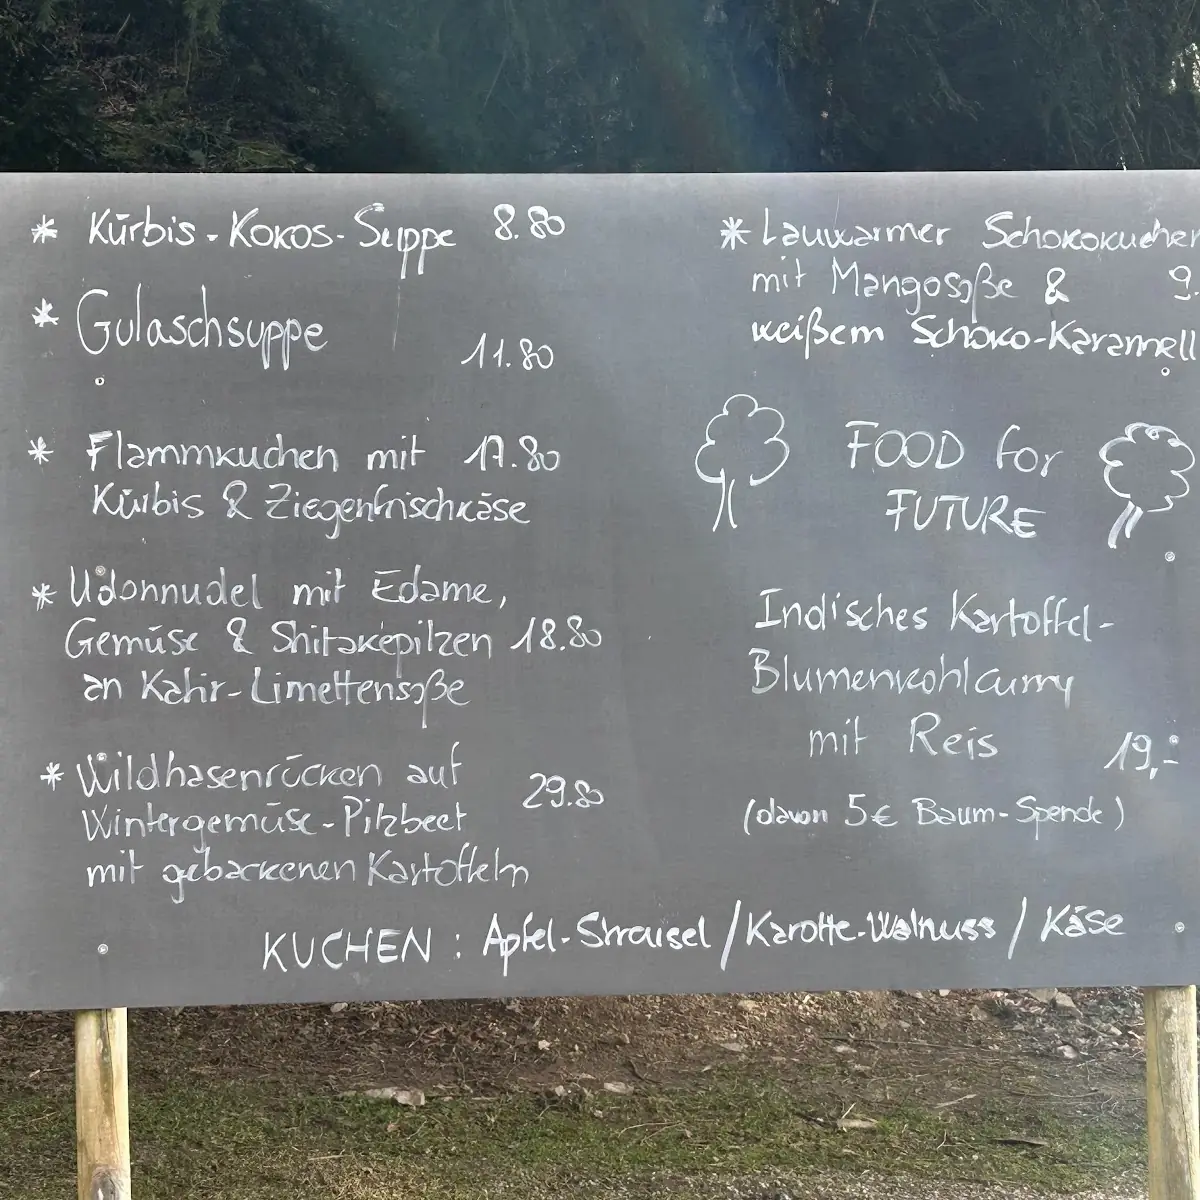 * Kürbis-Kokos-Suppe 8.80
* Gulaschsuppe 11.80
* Flammkuchen mit 17.80
Kürbis & Ziegenfrischkäse
* Udonnudel mit Edame,
Gemüse & Shitakepilzen 18.80
an Kafir-Limettensoße
* Wildhasenrücken auf
Wintergemüse-Pilzbeet 29.80
mit gebackenen Kartoffeln
* Lauwarmer Schokokuchen
mit Mangosoße & 9.
weißem Schoko-Karamell
FOOD for
FUTURE
Indisches Kartoffel-
Blumenkohlcurry
mit Reis 19,-
(davon 5€ Baum-Spende)
KUCHEN : Apfel-Streusel / Karotte-Walnuss / Käse